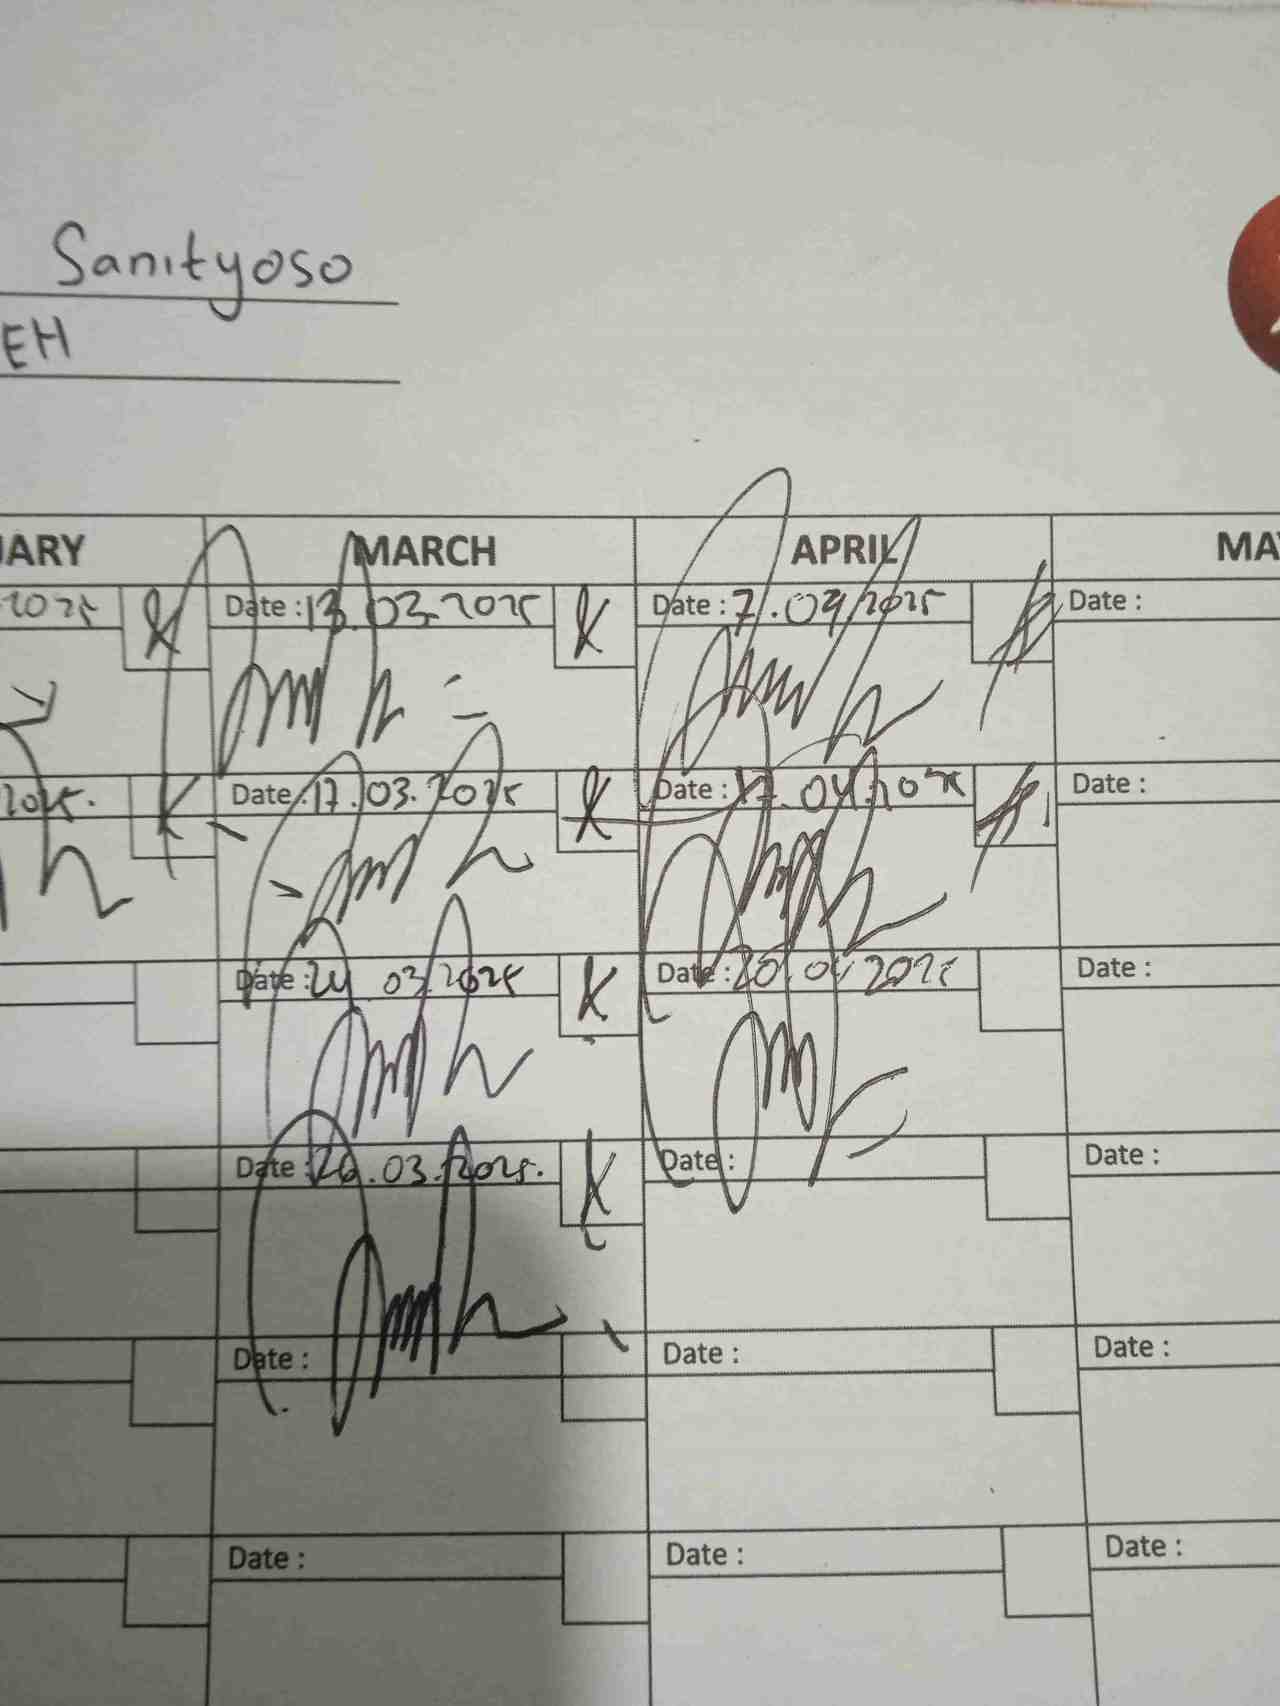 Sanityoso
EH
JARY MARCH APRIL MA
2025 K Date : 13.03.2025 K Date : 7.04.2025 Date :
2025. K Date : 17.03.2025 K Date : 17.04.2025 Date :
Date : 24 03.2025 K Date : 20.04 2025 Date :
Date : 26.03.2025. K Date : Date :
Date : Date : Date :
Date : Date : Date :